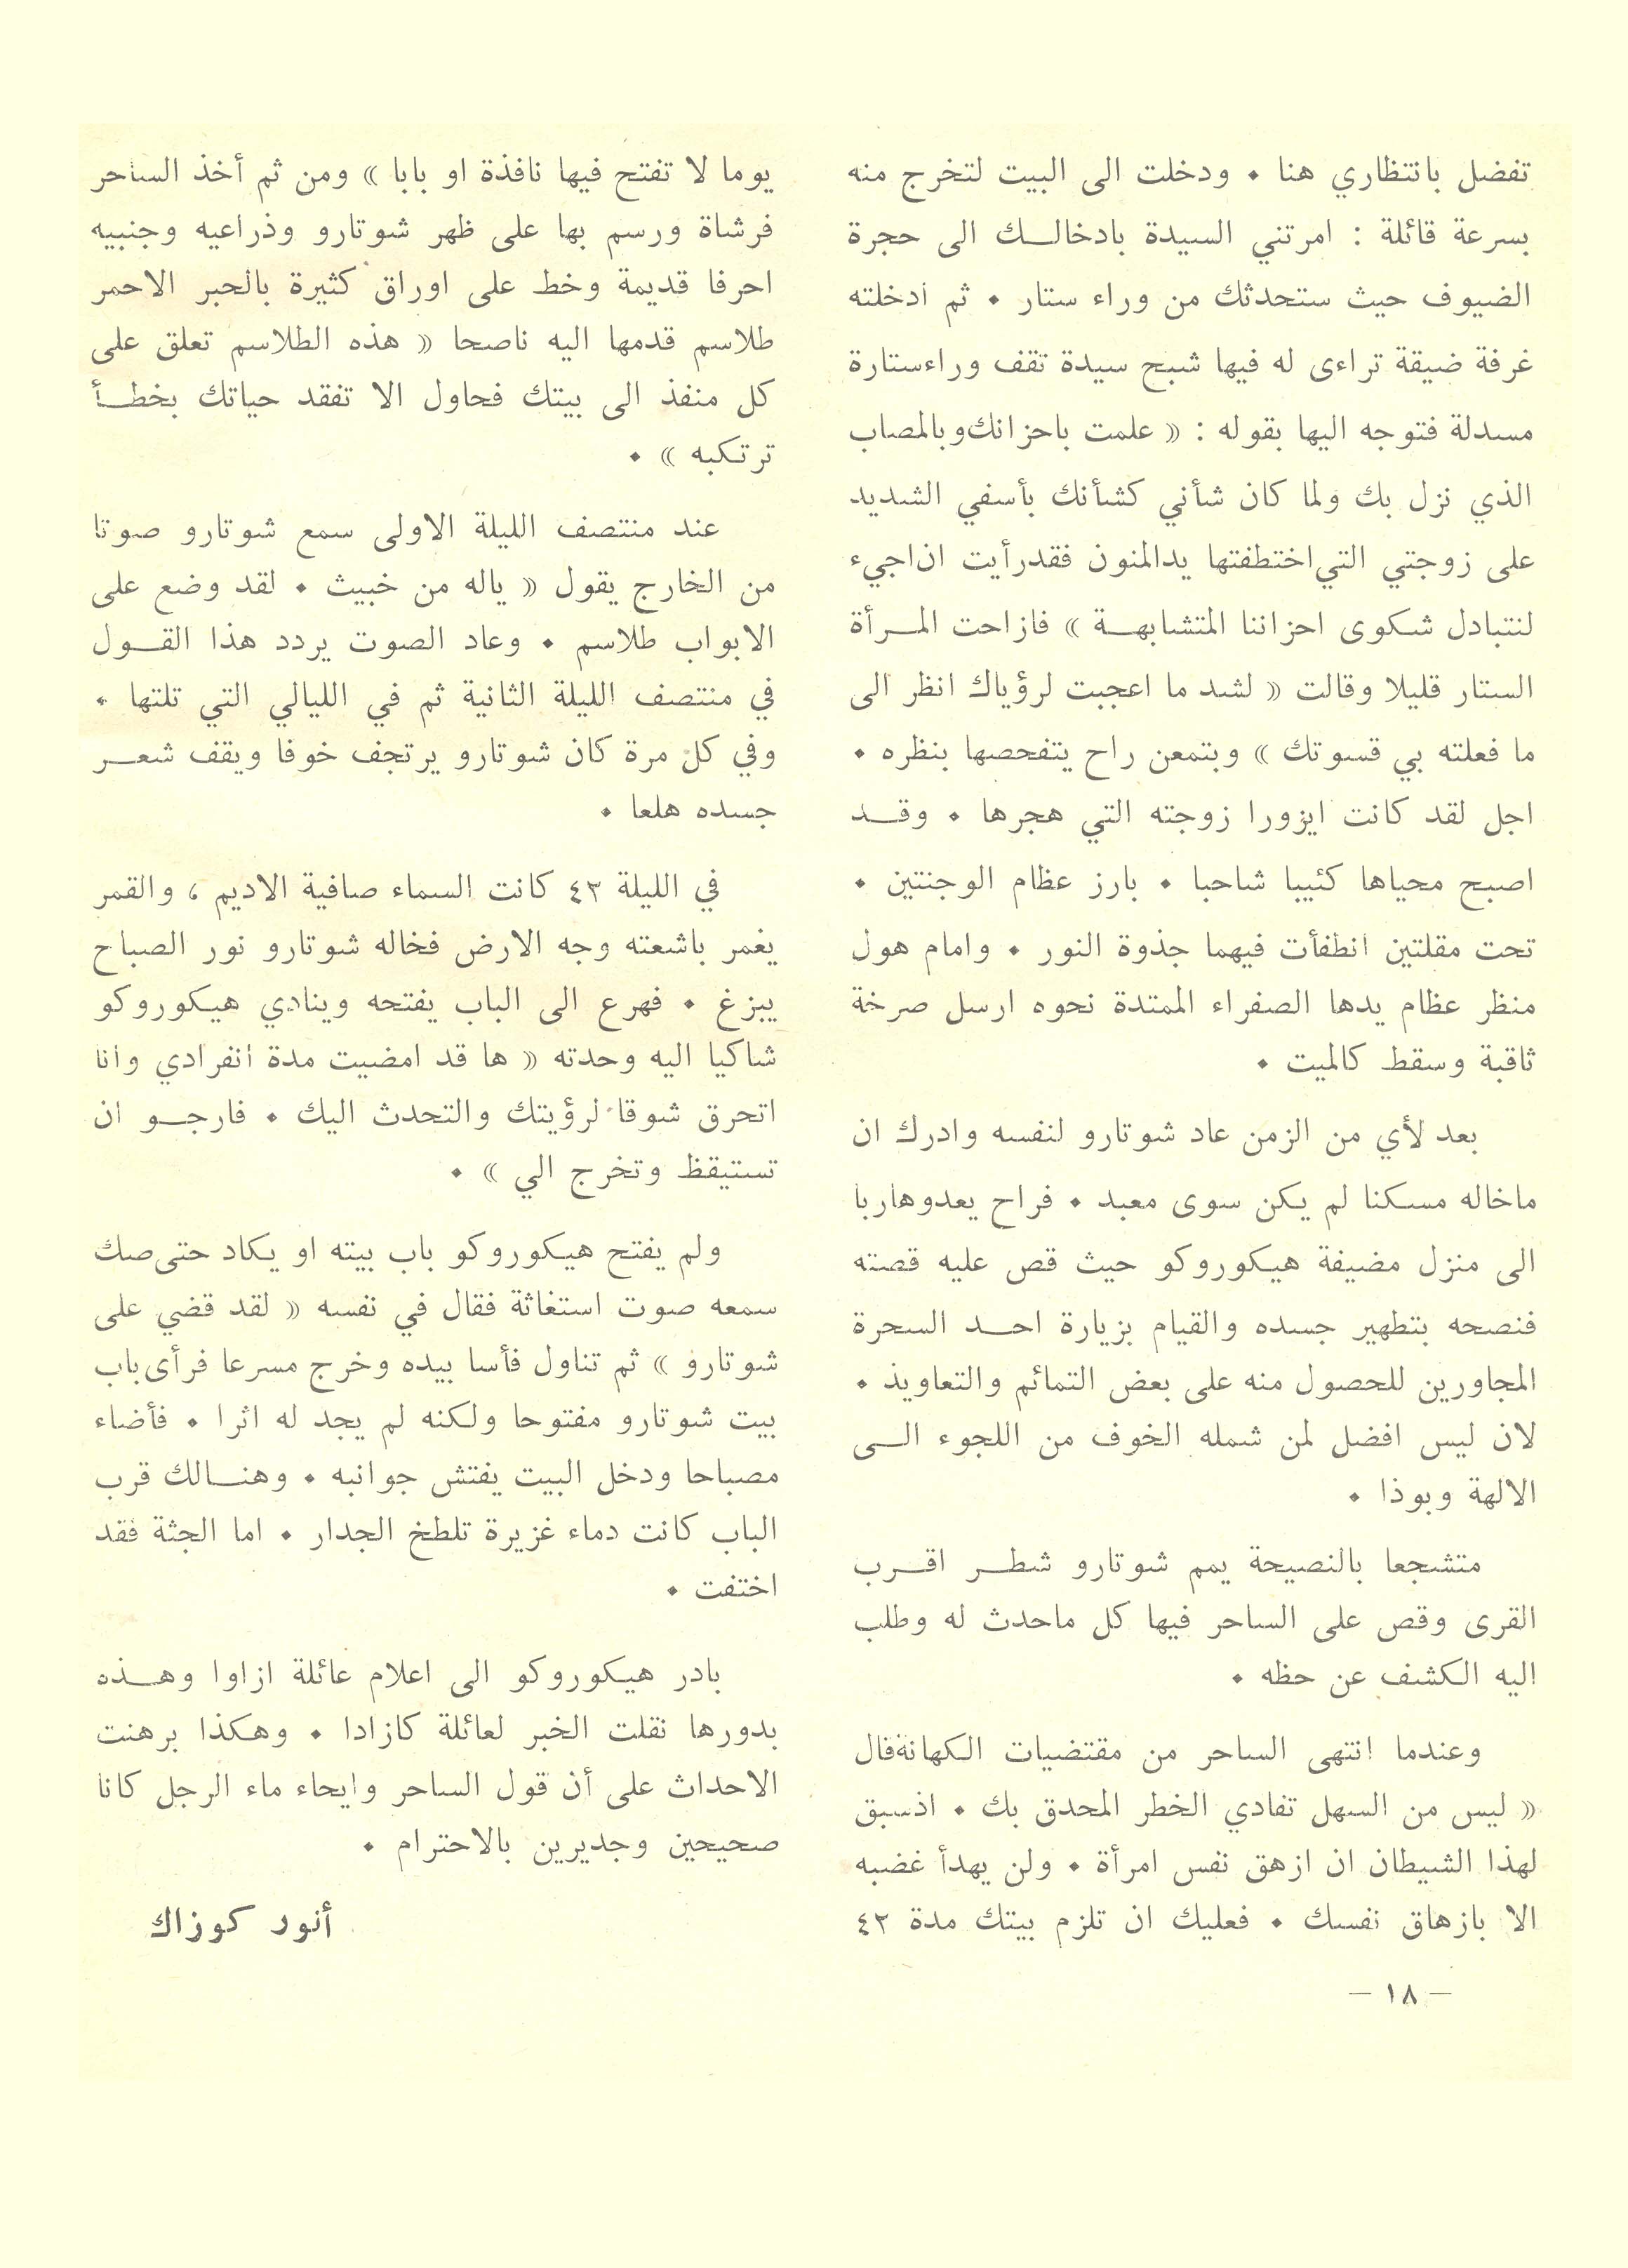 تفضل بانتظاري هنا • ودخلت الى البيت لتخرج منه
بسرعة قائلة : امرتني السيدة بادخالك الى حجرة
الضيوف حيث ستحدثك من وراء ستار • ثم ادخلته
غرفة ضيقة تراءى له فيها شبح سيدة تقف وراءستارة
مسدلة فتوجه اليها بقوله : « علمت باحزانك وبالمصاب
الذي نزل بك ولما كان شأني كشأنك بأسفي الشديد
على زوجتي التي اختطفتها يدالمنون فقدرأيت ان اجيء
لنتبادل شكوى احزاننا المتشابهة » فازاحت المرأة
الستار قليلا وقالت « لشد ما اعجبت لرؤياك انظر الى
ما فعلته بي قسوتك » وبتمعن راح يتفحصها بنظره •
اجل لقد كانت ايزورا زوجته التي هجرها • وقد
اصبح محياها كئيبا شاحبا • بارز عظام الوجنتين •
تحت مقلتين انطفأت فيهما جذوة النور • وامام هول
منظر عظام يدها الصفراء الممتدة نحوه ارسل صرخة
ثاقبة وسقط كالميت •
بعد لأي من الزمن عاد شوتارو لنفسه وادرك ان
ماخاله مسكنا لم يكن سوى معبد • فراح يعدوهاربا
الى منزل مضيفة هيكوروكو حيث قص عليه قصته
فنصحه بتطهير جسده والقيام بزيارة احد السحرة
المجاورين للحصول منه على بعض التمائم والتعاويذ •
لان ليس افضل لمن شمله الخوف من اللجوء الى
الالهة وبوذا •
متشجعا بالنصيحة يمم شوتارو شطر اقرب
القرى وقص على الساحر فيها كل ماحدث له وطلب
اليه الكشف عن حظه •
وعندما انتهى الساحر من مقتضيات الكهانةقال
« ليس من السهل تفادي الخطر المحدق بك • اذسبق
لهذا الشيطان ان ازهق نفس امرأة • ولن يهدأ غضبه
الا بازهاق نفسك • فعليك ان تلزم بيتك مدة ٤٢
يوما لا تفتح فيها نافذة او بابا » ومن ثم أخذ الساحر
فرشاة ورسم بها على ظهر شوتارو وذراعيه وجنبيه
احرفا قديمة وخط على اوراق كثيرة بالحبر الاحمر
طلاسم قدمها اليه ناصحا « هذه الطلاسم تعلق على
كل منفذ الى بيتك فحاول الا تفقد حياتك بخطأ
ترتكبه » •
عند منتصف الليلة الاولى سمع شوتارو صوتا
من الخارج يقول « ياله من خبيث • لقد وضع على
الابواب طلاسم • وعاد الصوت يردد هذا القول
في منتصف الليلة الثانية ثم في الليالي التي تلتها •
وفي كل مرة كان شوتارو يرتجف خوفا ويقف شعر
جسده هلعا •
في الليلة ٤٣ كانت السماء صافية الاديم ، والقمر
يغمر باشعته وجه الارض فخاله شوتارو نور الصباح
يبزغ • فهرع الى الباب يفتحه وينادي هيكوروكو
شاكيا اليه وحدته « ها قد امضيت مدة انفرادي وانا
اتحرق شوقا لرؤيتك والتحدث اليك • فارجو ان
تستيقظ وتخرج الي » •
ولم يفتح هيكوروكو باب بيته او يكاد حتى صك
سمعه صوت استغاثة فقال في نفسه « لقد قضي على
شوتارو » ثم تناول فأسا بيده وخرج مسرعا فرأى باب
بيت شوتارو مفتوحا ولكنه لم يجد له اثرا • فأضاء
مصباحا ودخل البيت يفتش جوانبه • وهنالك قرب
الباب كانت دماء غزيرة تلطخ الجدار • اما الجثة فقد
اختفت •
بادر هيكوروكو الى اعلام عائلة ازاوا وهذه
بدورها نقلت الخبر لعائلة كازادا • وهكذا برهنت
الاحداث على أن قول الساحر وايحاء ماء الرجل كانا
صحيحين وجديرين بالاحترام •
أنور كوزاك
— ١٨ —